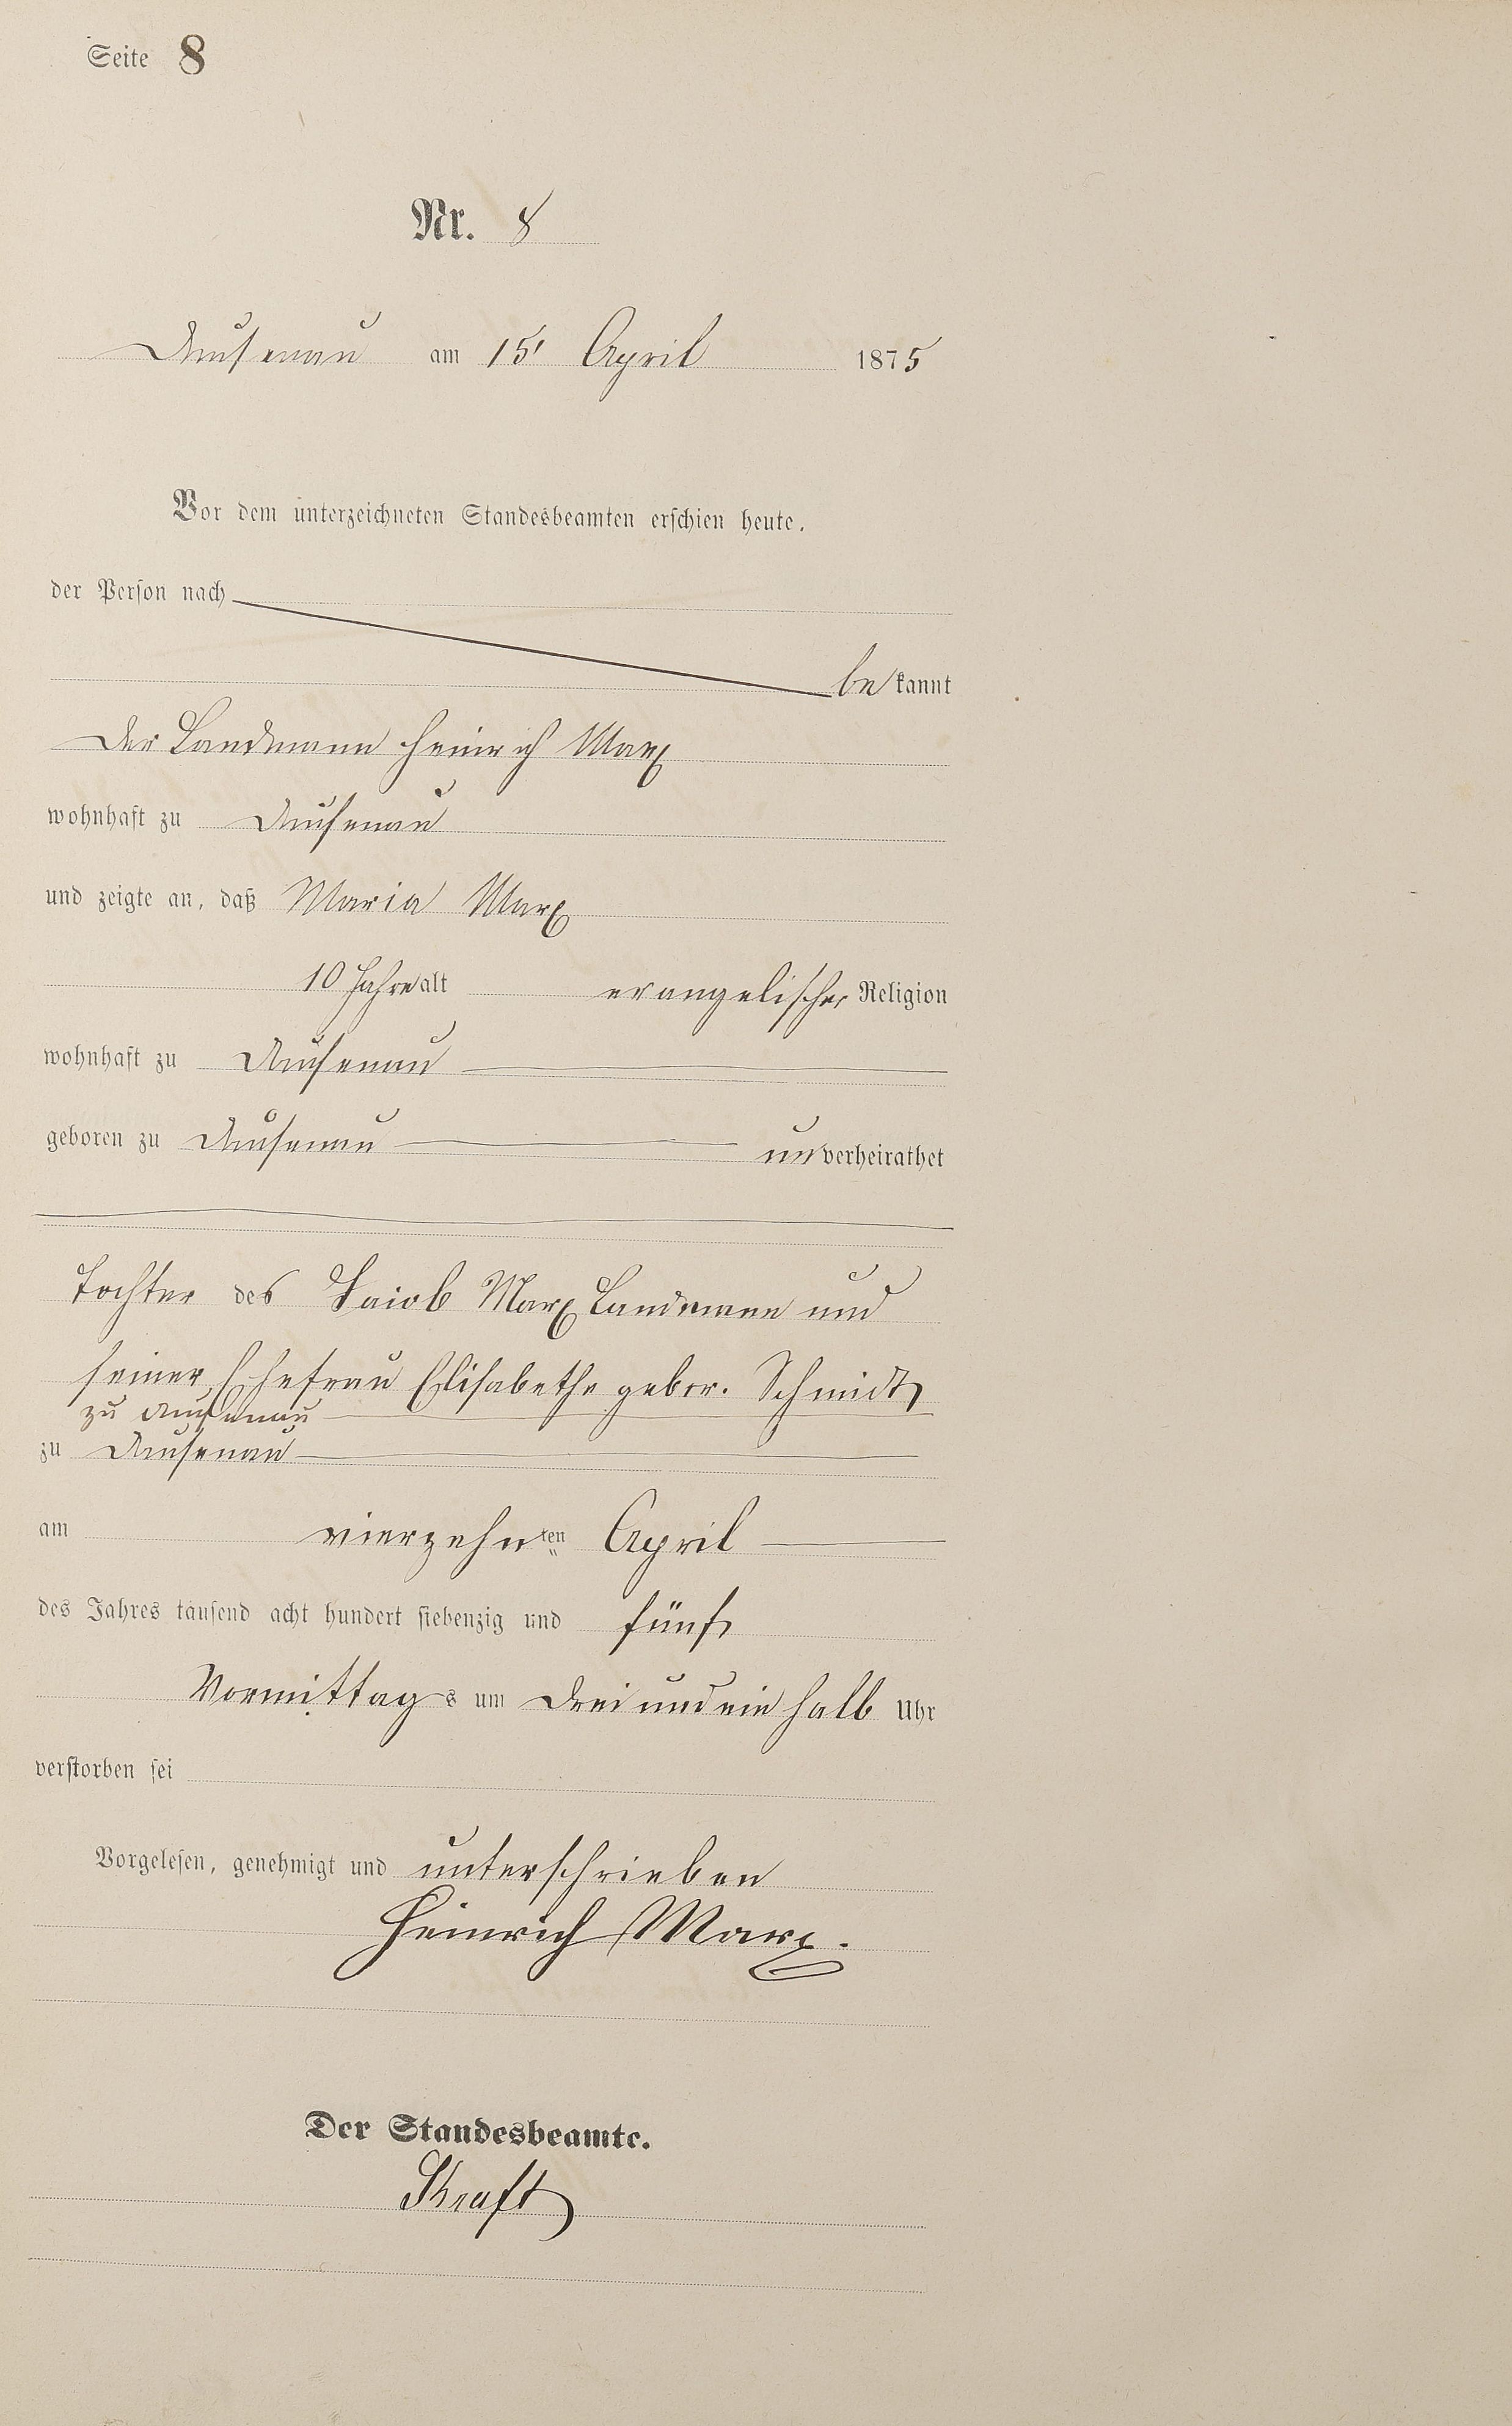 Seite 8
Nr. 8
Dausenau am 15' April 1875
Vor dem unterzeichneten Standesbeamten erschien heute.
der Person nach
be kannt
der Landmann Heinrich Marx
wohnhaft zu Dausenau
und zeigte an, daß Maria Marx
10 Jahre alt evangelischer Religion
wohnhaft zu Dausenau
geboren zu Dausenau un verheirathet
Tochter des Jacob Marx Landmann und
seiner Ehefrau Elisabethe gebor. Schmidt
zu Dausenau
zu Dausenau
am vierzehnten April
des Jahres tausend acht hundert siebenzig und fünf
Vormittags um drei und ein halb Uhr
verstorben sei
Vorgelesen, genehmigt und unterschrieben
Heinrich Marx.
Der Standesbeamte.
Kraft